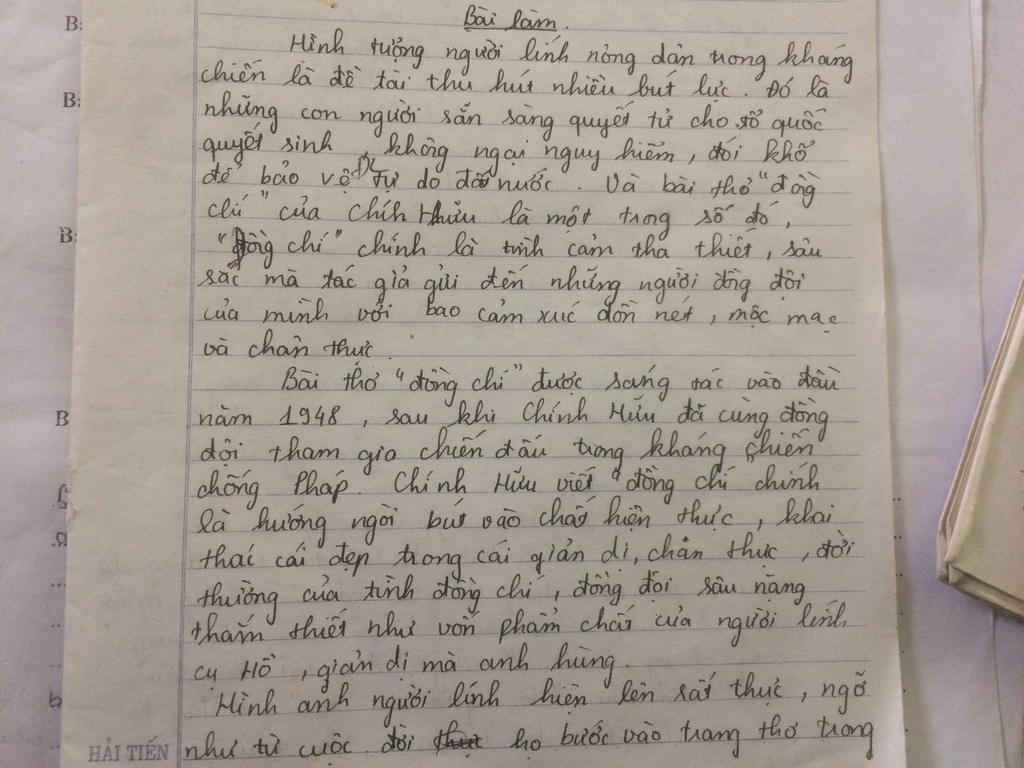 Bài làm.
Hình tượng người lính nông dân trong kháng
chiến là đề tài thu hút nhiều bút lực. Đó là
những con người sẵn sàng quyết tử cho tổ quốc
quyết sinh, không ngại nguy hiểm, đói khổ
để bảo vệ tự do đất nước. Và bài thơ "đồng
chí" của Chính Hữu là một trong số đó,
"Đồng chí" chính là tình cảm tha thiết, sâu
sắc mà tác giả gửi đến những người đồng đội
của mình với bao cảm xúc dồn nét, mộc mạc
và chân thực.
Bài thơ "đồng chí" được sáng tác vào đầu
năm 1948, sau khi Chính Hữu đã cùng đồng
đội tham gia chiến đấu trong kháng chiến
chống Pháp. Chính Hữu viết "đồng chí" chính
là hướng ngòi bút vào chất hiện thực, khai
thác cái đẹp trong cái giản dị, chân thực, đời
thường của tình đồng chí, đồng đội sâu nặng
thắm thiết như vốn phẩm chất của người lính
cụ Hồ, giản dị mà anh hùng.
Hình anh người lính hiện lên rất thực, ngỡ
như từ cuộc đời họ bước vào trang thơ trong
HẢI TIẾN
B:
B:
B:
B